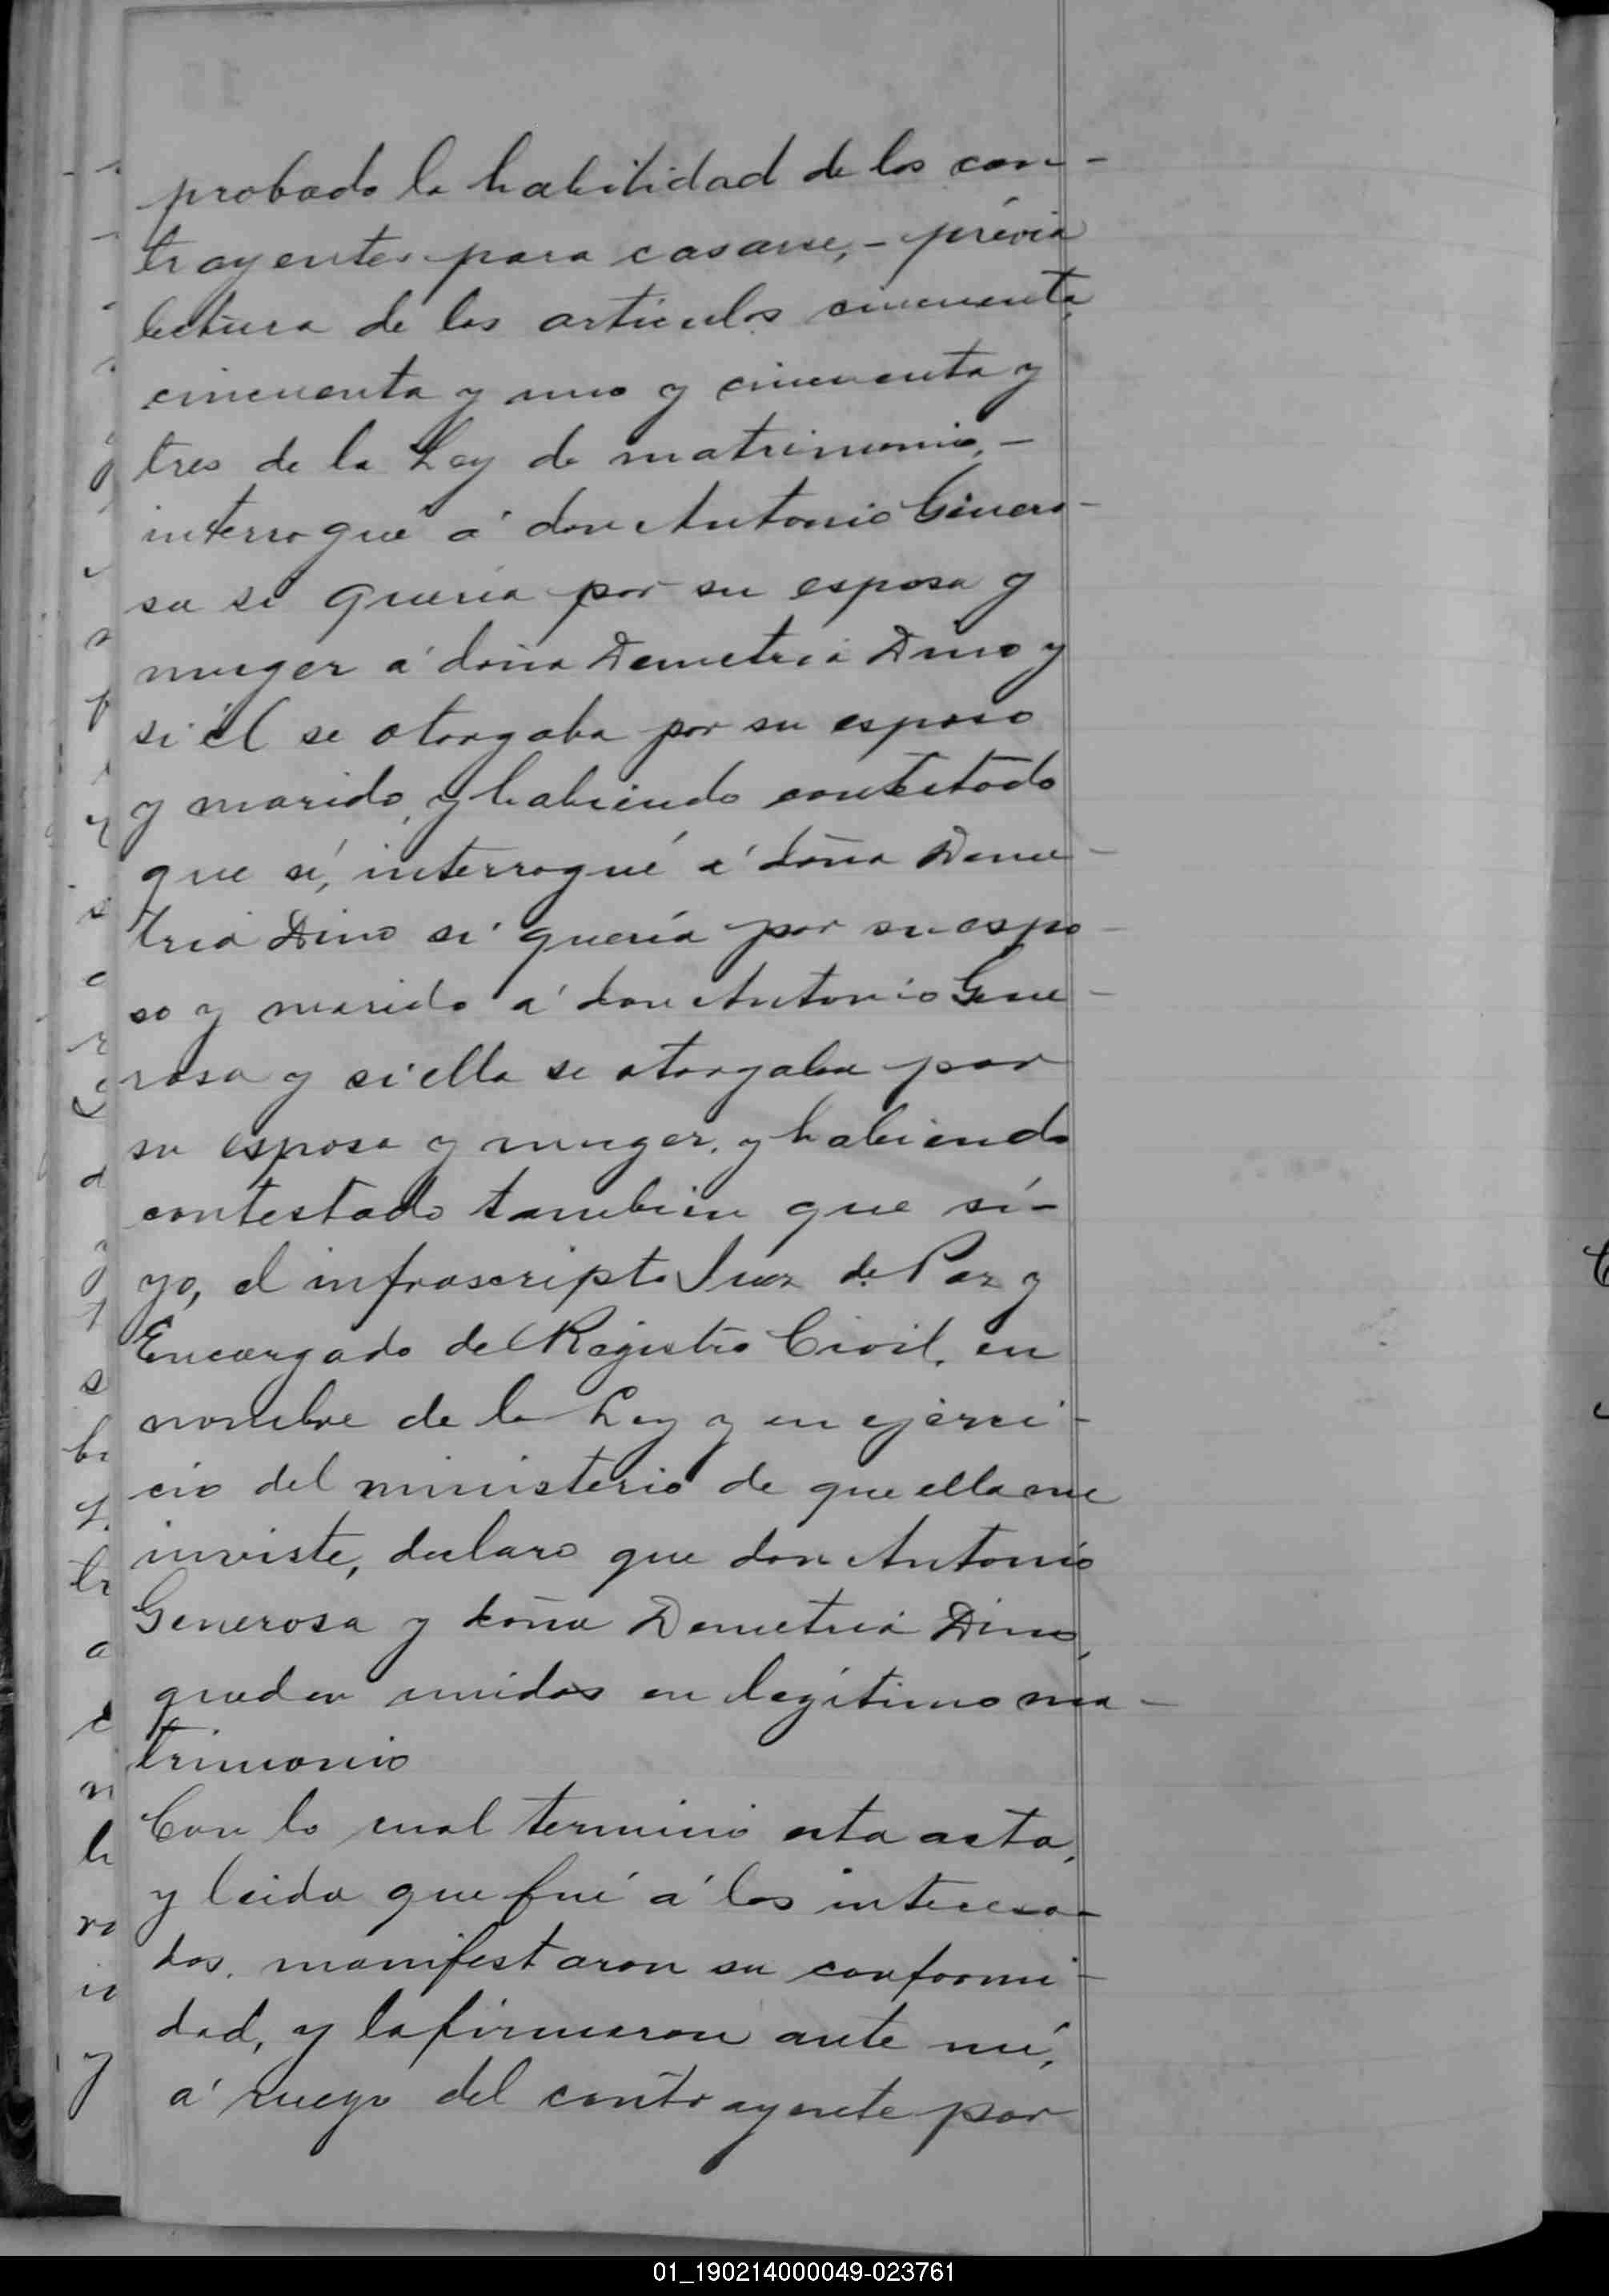 probado la habilidad de los con-
trayentes para casarse, - prévia
lectura de los artículos cincuenta,
cincuenta y uno y cincuenta y
tres de la Ley de matrimonio, -
interrogué á don Antonio Genero-
sa si quería por su esposa y
muger á doña Demetria Dino y
si él se otorgaba por su esposo
y marido, y habiendo contestado
que sí, interrogué á doña Deme-
tria Dino si quería por su espo-
so y marido á don Antonio Gene-
rosa y si ella se otorgaba por
su esposa y muger, y habiendo
contestado tambien que sí -
yo, el infrascripto Juez de Paz y
Encargado del Registro Civil, en
nombre de la Ley y en ejerci-
cio del ministerio de que ella me
inviste, declaro que don Antonio
Generosa y doña Demetria Dino,
quedan unidos en legítimo ma-
trimonio
Con lo cual terminó esta acta,
y leida que fué á los interesa-
dos, manifestaron su conformi-
dad, y la firmaron ante mí,
á ruego del contrayente por
01_190214000049-023761